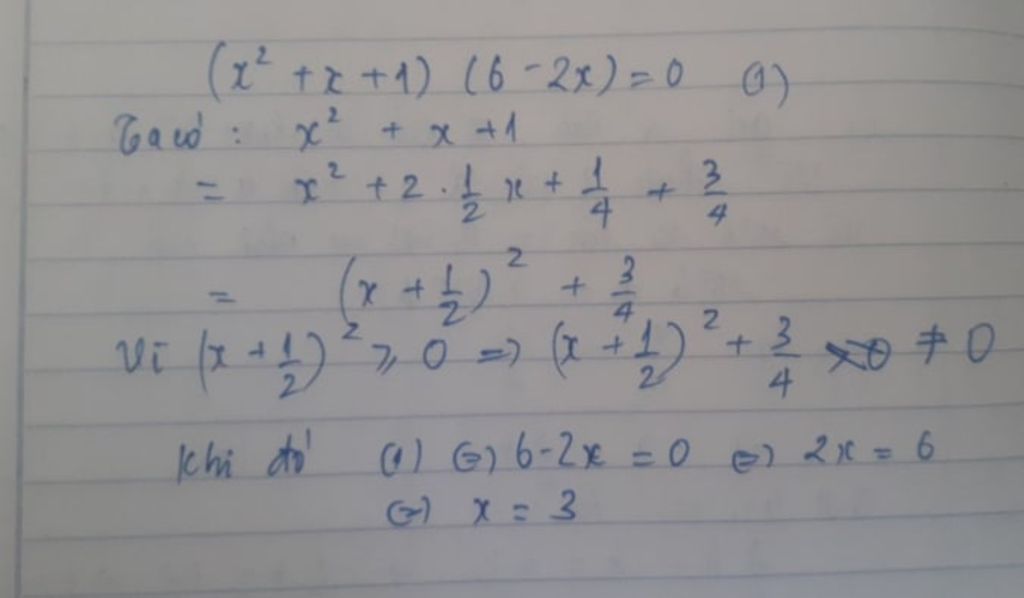 (x² + x + 1) (6 - 2x) = 0 (1)
Ta có : x² + x + 1
= x² + 2 . 1/2 x + 1/4 + 3/4
= (x + 1/2)² + 3/4
Vì (x + 1/2)² ⩾ 0 => (x + 1/2)² + 3/4 ≠ 0
Khi đó (1) <=> 6 - 2x = 0 <=> 2x = 6
<=> x = 3